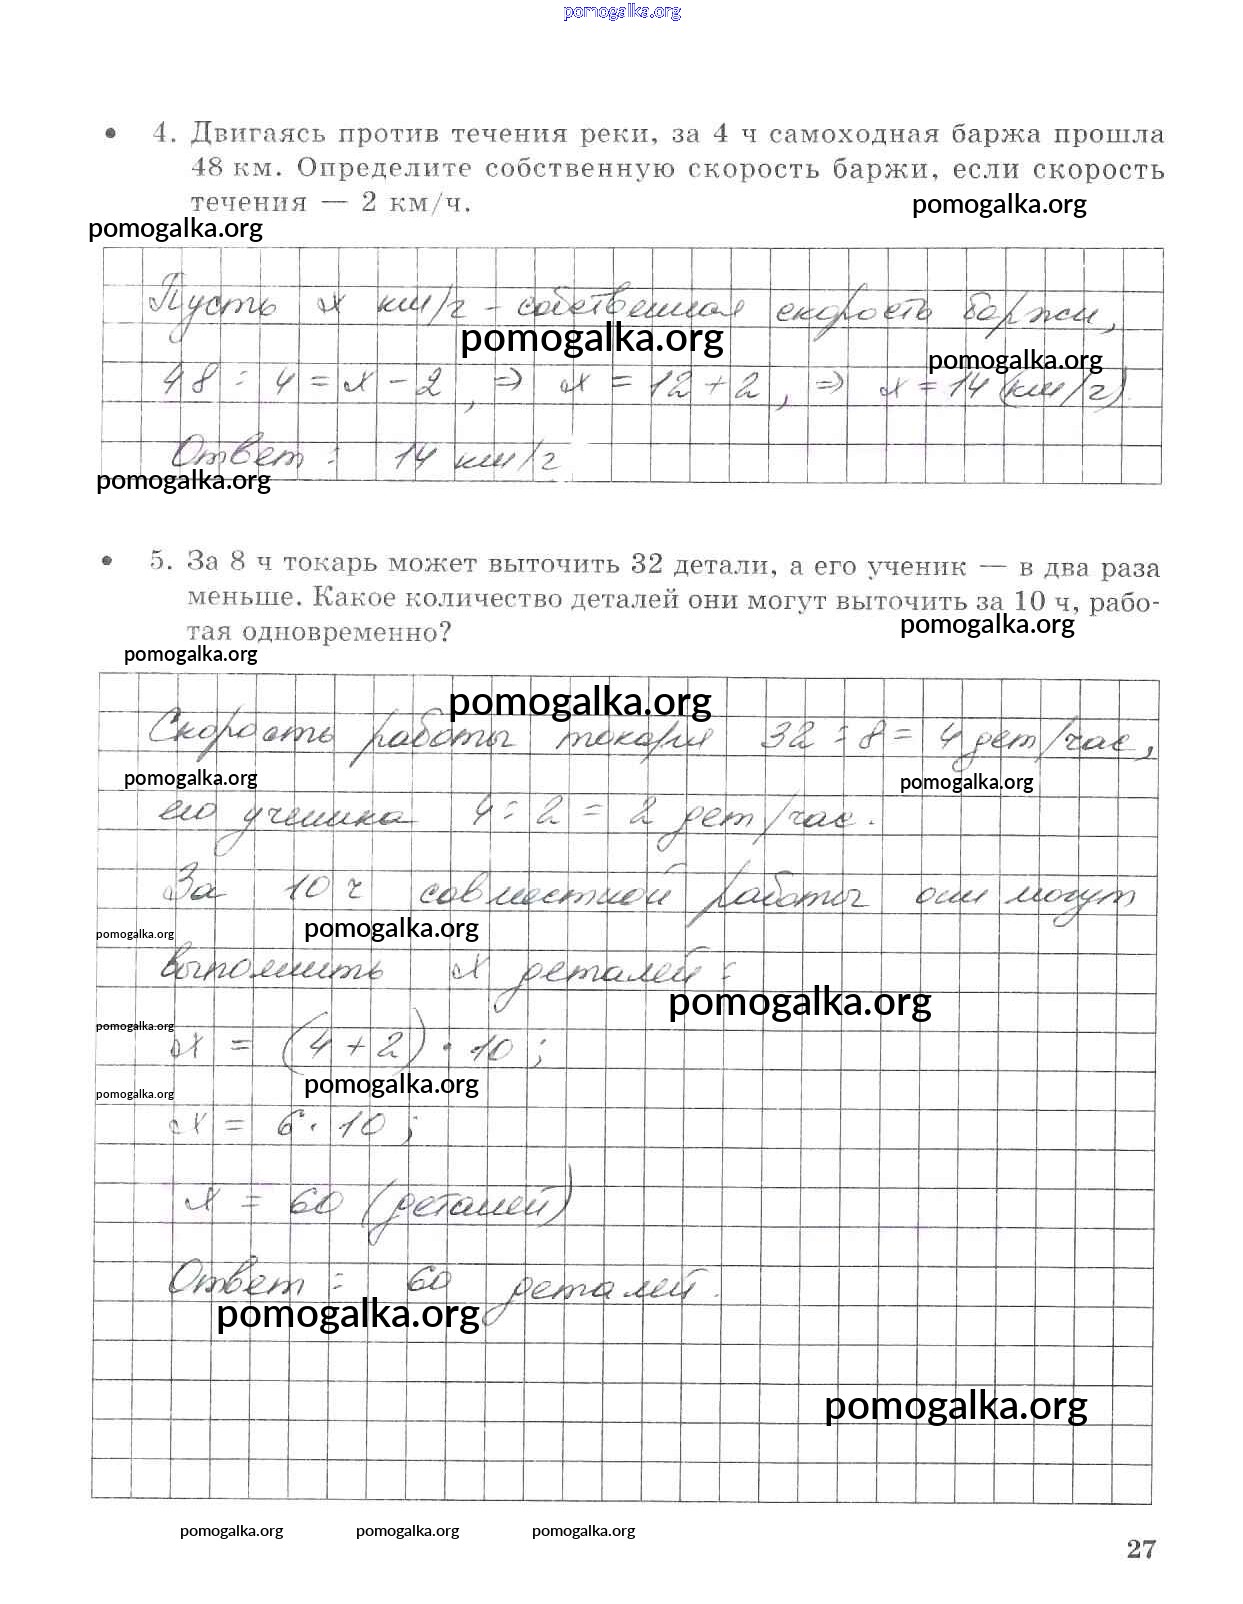 pomogalka.org
• 4. Двигаясь против течения реки, за 4 ч самоходная баржа прошла
48 км. Определите собственную скорость баржи, если скорость
течения — 2 км/ч.
pomogalka.org
pomogalka.org
Пусть x км/ч - собственная скорость баржи,
pomogalka.org
pomogalka.org
48 : 4 = x - 2, ⇒ x = 12 + 2, ⇒ x = 14 (км/ч)
Ответ: 14 км/ч
pomogalka.org
• 5. За 8 ч токарь может выточить 32 детали, а его ученик — в два раза
меньше. Какое количество деталей они могут выточить за 10 ч, рабо-
тая одновременно?
pomogalka.org
pomogalka.org
pomogalka.org
Скорость работы токаря 32 : 8 = 4 дет/час,
pomogalka.org
pomogalka.org
его ученика 4 : 2 = 2 дет/час.
За 10 ч совместной работы они могут
pomogalka.org
pomogalka.org
выполнить x деталей:
pomogalka.org
pomogalka.org
x = (4 + 2) · 10;
pomogalka.org
pomogalka.org
x = 6 · 10;
x = 60 (деталей)
Ответ: 60 деталей.
pomogalka.org
pomogalka.org
pomogalka.org pomogalka.org pomogalka.org
27